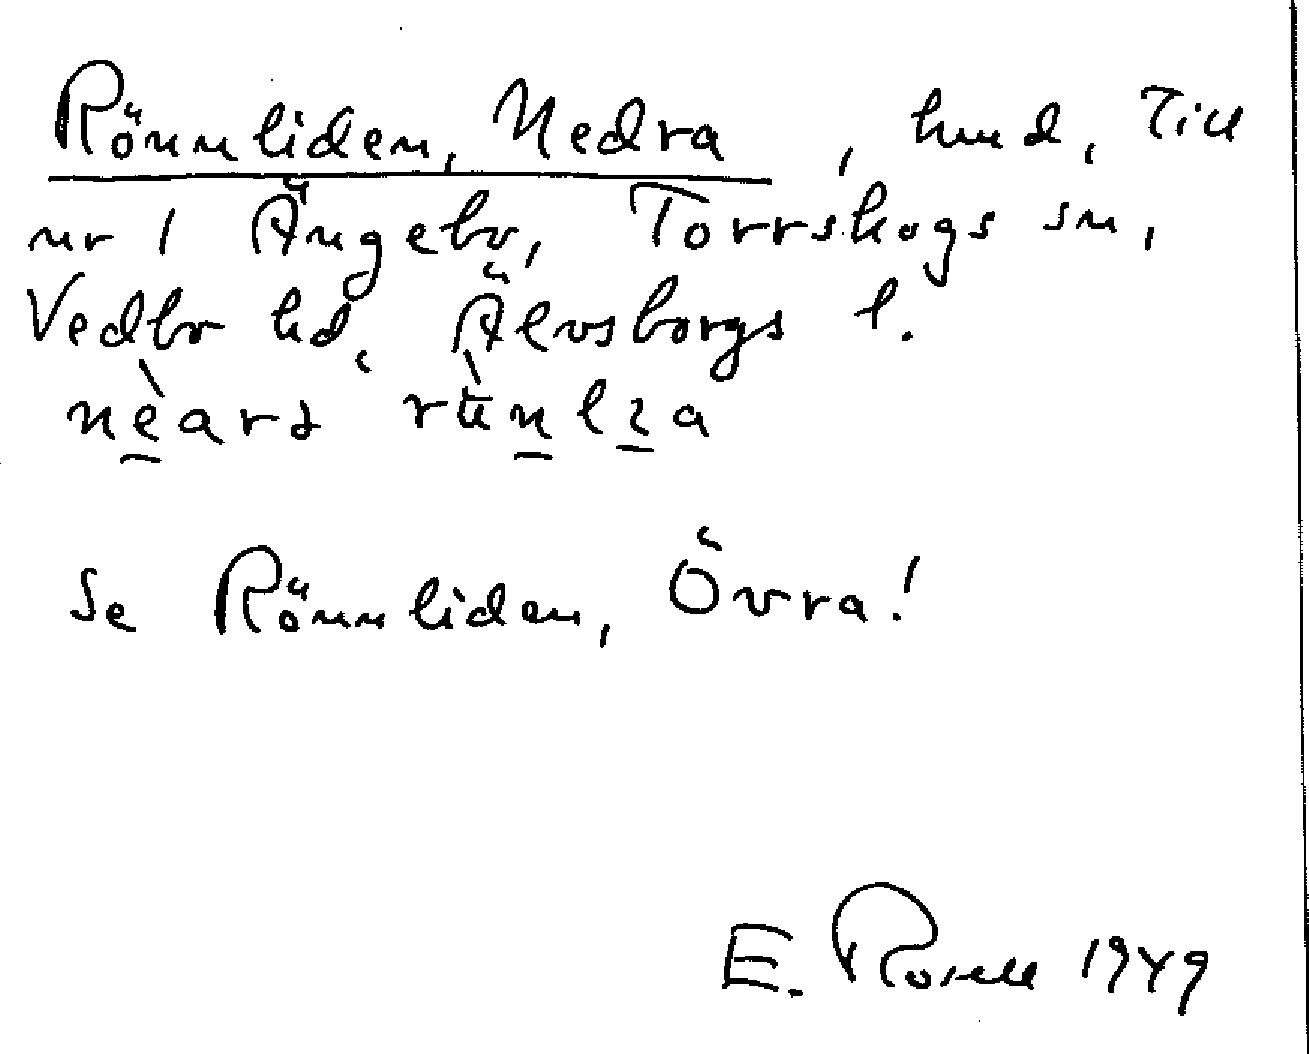 Rönnliden, Nedra, hmd, Till
nr 1 Ängebo, Torrskogs sn,
Vedbo hd, Älvsborgs l.
Se Rönnliden, Övra!
E. Rosell 1949